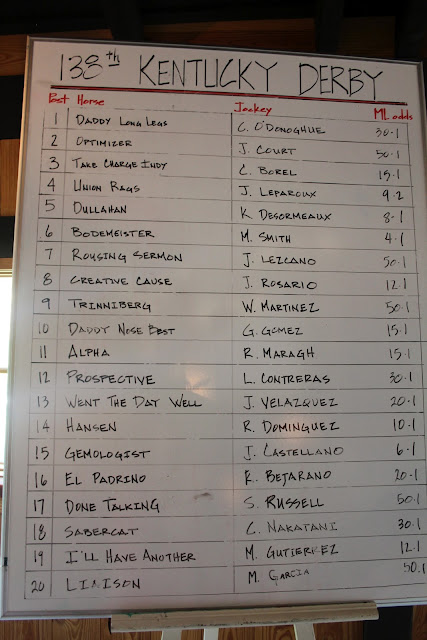 138th KENTUCKY DERBY
Post Horse Jockey ML odds
1 DADDY LONG LEGS C. O'DONOGHUE 30.1
2 OPTIMIZER J. COURT 50.1
3 TAKE CHARGE INDY C. BOREL 15.1
4 UNION RAGS J. LEPAROUX 9.2
5 DULLAHAN K DESORMEAUX 8.1
6 BODEMEISTER M. SMITH 4.1
7 ROUSING SERMON J. LEZCANO 50.1
8 CREATIVE CAUSE J. ROSARIO 12.1
9 TRINNIBERG W. MARTINEZ 50.1
10 DADDY NOSE BEST G. GOMEZ 15.1
11 ALPHA R. MARAGH 15.1
12 PROSPECTIVE L. CONTRERAS 30.1
13 WENT THE DAY WELL J. VELAZQUEZ 20.1
14 HANSEN R. DOMINGUEZ 10.1
15 GEMOLOGIST J. CASTELLANO 6.1
16 EL PADRINO R. BEJARANO 20.1
17 DONE TALKING S. RUSSELL 50.1
18 SABERCAT C. NAKATANI 30.1
19 I'LL HAVE ANOTHER M. GUTIERREZ 12.1
20 LIAISON M. GARCIA 50.1